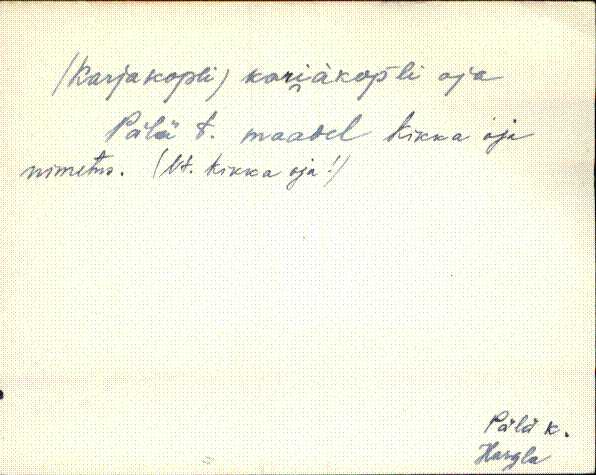 (Karjakopli) kori̯akopli oja
Pälü t. maadel Kikka oja
nimetus. (Vt. Kikka oja!)
Pälü k.
Hargla